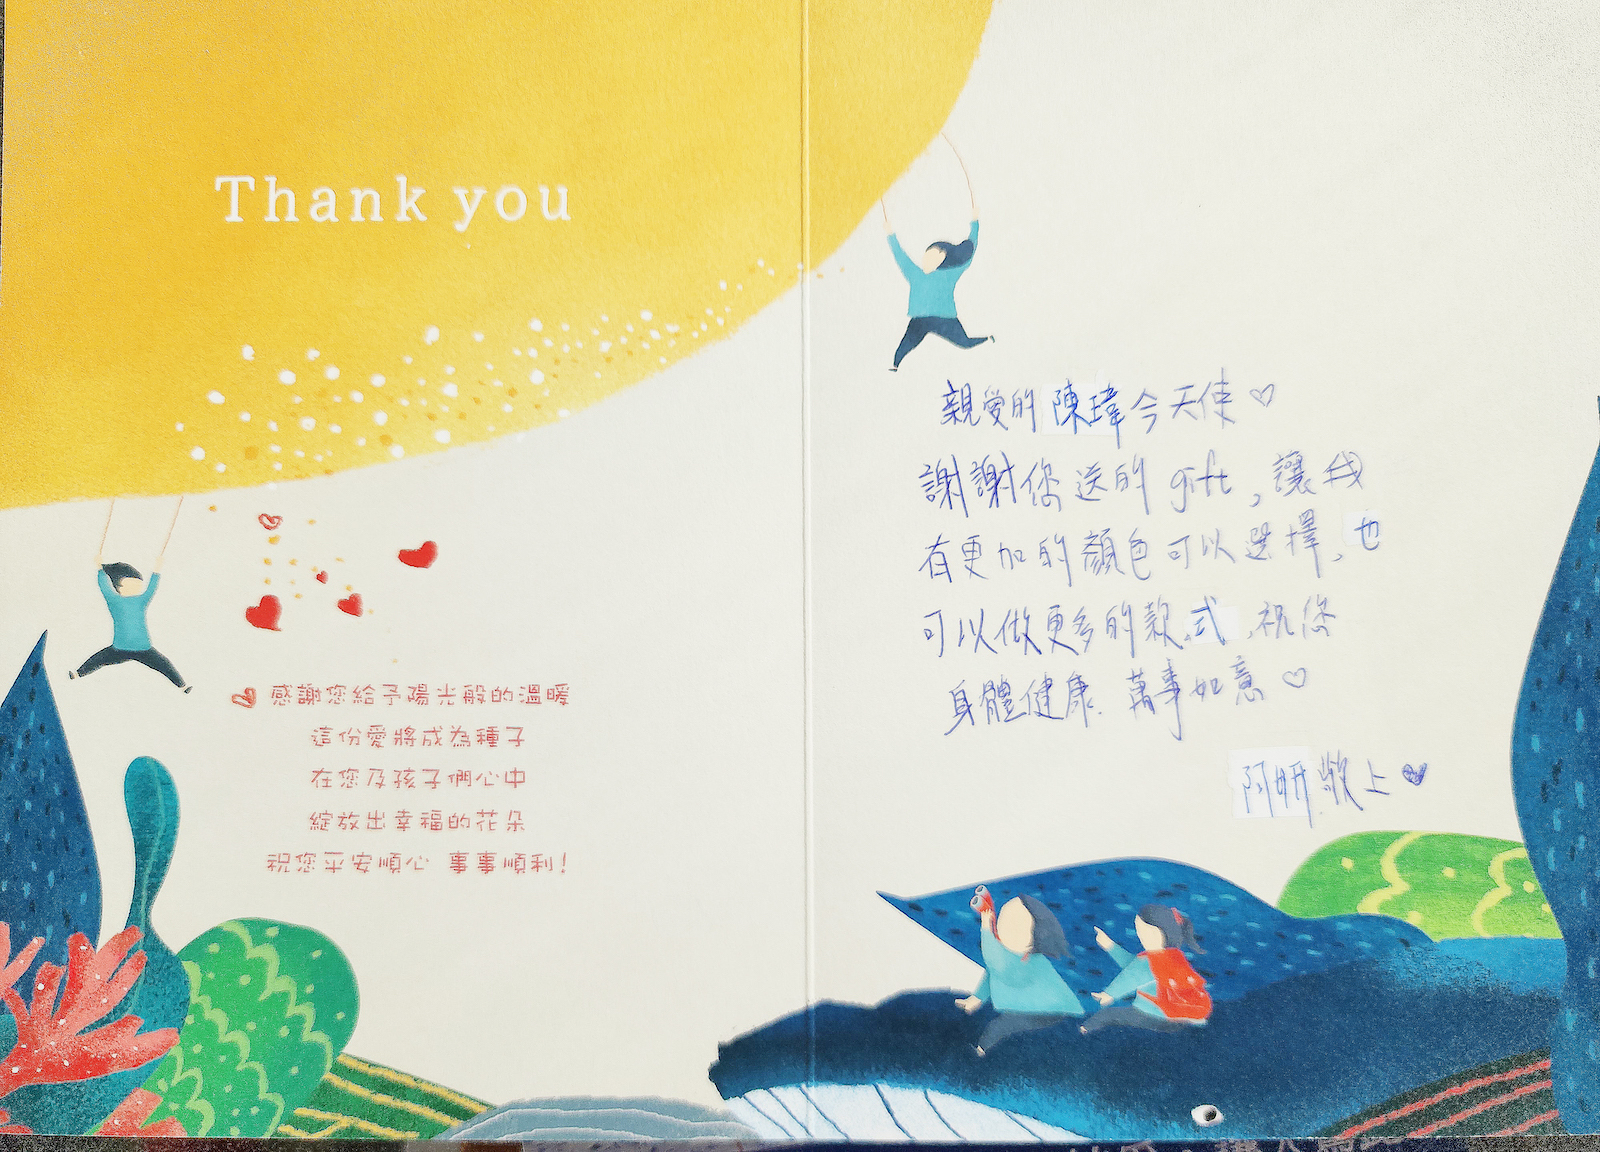 Thank you
感謝您給予陽光般的溫暖
這份愛將成為種子
在您及孩子們心中
綻放出幸福的花朵
祝您平安順心 事事順利!
親愛的陳瑋今天使♡
謝謝您送的gift,讓我
有更加的顏色可以選擇,也
可以做更多的款式,祝您
身體健康.萬事如意♡
阿妍敬上♥